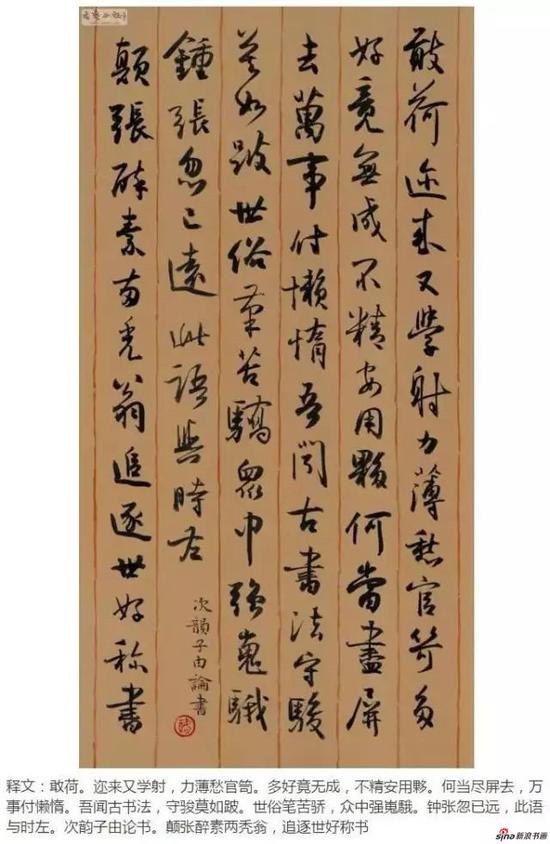 敢荷迩来又學射力薄愁官笴多
好竟無成不精安用夥何當盡屏
去萬事付懶惰吾聞古書法守駿
莫如跛世俗筆苦驕眾中強嵬騀
鍾張忽已遠此語與時左
次韻子由論書
顛張醉素两秃翁追逐世好称書
释文：敢荷。迩来又学射，力薄愁官笴。多好竟无成，不精安用夥。何当尽屏去，万
事付懒惰。吾闻古书法，守骏莫如跛。世俗笔苦骄，众中强嵬騀。钟张忽已远，此语
与时左。次韵子由论书。颠张醉素两秃翁，追逐世好称书
sina 新浪书画